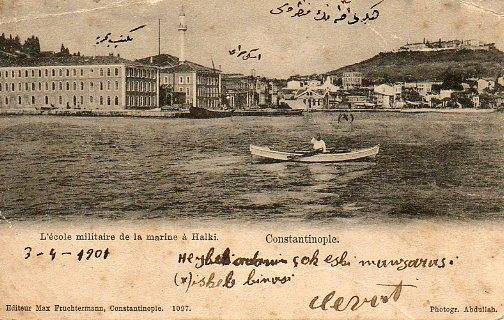 مكتب بحريه
L'école militaire de la marine à Halki.
Constantinople.
3-4-1901
Heybeli adanın çok eski manzarası
(x) iskele binası
Cevat
Editeur Max Fruchtermann, Constantinople. 1097.
Photogr. Abdullah.